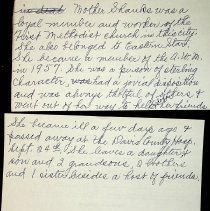 Mother Shanks was a
loyal member and worker of the
First Methodist church in this city.
She also belonged to Eastern Star.
She became a member of the A.W.M.
in 1957. She was a person of sterling
character, had a jovial disposition
and was always thoughtful of others &
went out of her way to help friends.
She became ill a few days ago &
passed away at the Davis County Hosp.
Sept. 24th. She leaves a daughter &
son and 2 grandsons, 2 brothers
and 1 sister besides a host of friends.